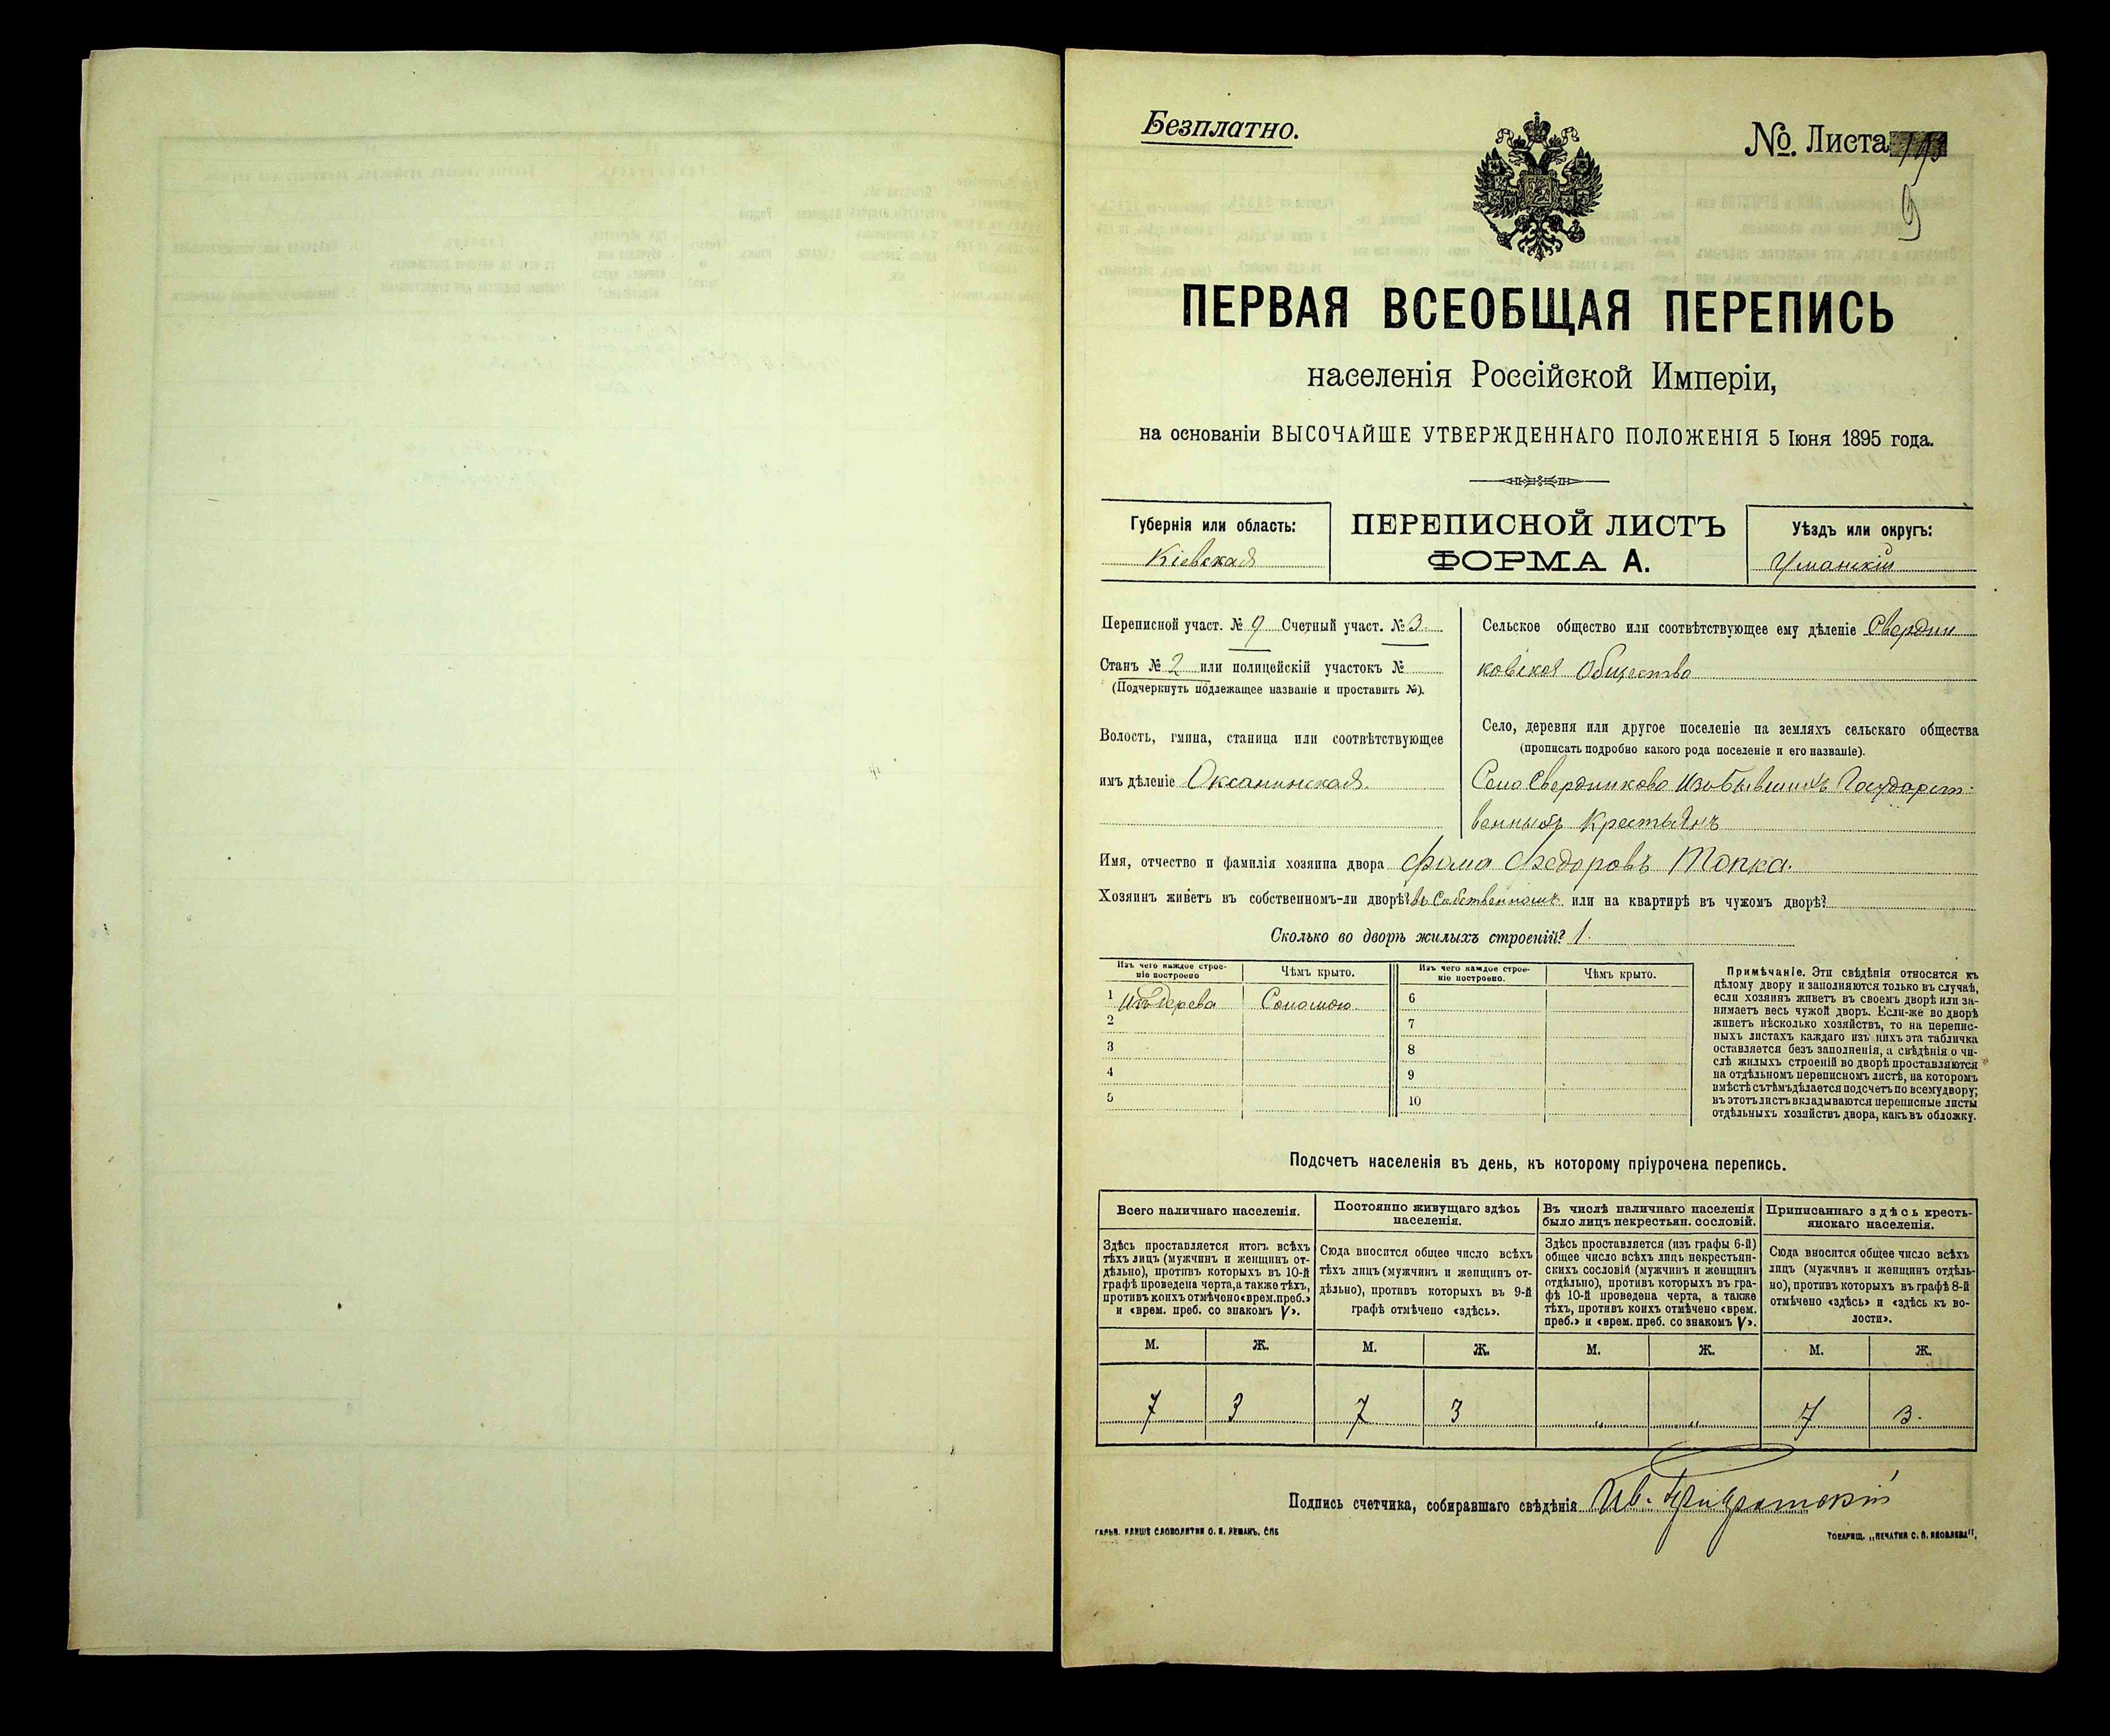 Безплатно.
№ Листа
9
ПЕРВАЯ ВСЕОБЩАЯ ПЕРЕПИСЬ
населенія Россійской Имперіи,
на основаніи ВЫСОЧАЙШЕ УТВЕРЖДЕННАГО ПОЛОЖЕНІЯ 5 Іюня 1895 года.
Губернія или область:
Кіевская
ПЕРЕПИСНОЙ ЛИСТЪ
ФОРМА А.
Уѣздъ или округъ:
Уманскій
Переписной участ. № 9 Счетный участ. № 3.
Станъ № 2 или полицейскій участокъ №
(Подчеркнуть подлежащее названіе и проставить №).
Волость, гмина, станица или соотвѣтствующее
имъ дѣленіе Оксанинская.
Сельское общество или соотвѣтствующее ему дѣленіе Свердли
ковское Общество
Село, деревня или другое поселеніе на земляхъ сельскаго общества
(прописать подробно какого рода поселеніе и его названіе).
Село Свердликово Изъ Бывшихъ Государст-
венныхъ Крестьянъ
Имя, отчество и фамилія хозяина двора Фома Федоровъ Топка.
Хозяинъ живетъ въ собственномъ-ли дворѣ? въ Собственномъ или на квартирѣ въ чужомъ дворѣ?
Сколько во дворѣ жилыхъ строеній? 1.
Изъ чего каждое строе-
ніе построено
Чѣмъ крыто.
Изъ чего каждое строе-
ніе построено.
Чѣмъ крыто.
1 Изъ Дерева Соломою.
2
3
4
5
6
7
8
9
10
Примѣчаніе. Эти свѣдѣнія относятся къ
цѣлому двору и заполняются только въ случаѣ,
если хозяинъ живетъ въ своемъ дворѣ или за-
нимаетъ весь чужой дворъ. Если-же во дворѣ
живетъ нѣсколько хозяйствъ, то на перепис-
ныхъ листахъ каждаго изъ нихъ эта табличка
оставляется безъ заполненія, а свѣдѣнія о чи-
слѣ жилыхъ строеній во дворѣ проставляются
на отдѣльномъ переписномъ листѣ, на которомъ
вмѣстѣ съ тѣмъ дѣлается подсчетъ по всему двору;
въ этотъ листъ вкладываются переписные листы
отдѣльныхъ хозяйствъ двора, какъ въ обложку.
Подсчетъ населенія въ день, къ которому пріурочена перепись.
Всего наличнаго населенія.
Здѣсь проставляется итогъ всѣхъ
тѣхъ лицъ (мужчинъ и женщинъ от-
дѣльно), противъ которыхъ въ 10-й
графѣ проведена черта, а также тѣхъ,
противъ коихъ отмѣчено «врем. преб.»
и «врем. преб. со знакомъ V».
Постоянно живущаго здѣсь
населенія.
Сюда вносится общее число всѣхъ
тѣхъ лицъ (мужчинъ и женщинъ от-
дѣльно), противъ которыхъ въ 9-й
графѣ отмѣчено «здѣсь».
Въ числѣ наличнаго населенія
было лицъ некрестьян. сословій.
Здѣсь проставляется (изъ графы 6-й)
общее число всѣхъ лицъ некрестьян-
скихъ сословій (мужчинъ и женщинъ
отдѣльно), противъ которыхъ въ гра-
фѣ 10-й проведена черта, а также
тѣхъ, противъ коихъ отмѣчено «врем.
преб.» и «врем. преб. со знакомъ V».
Приписаннаго здѣсь кресть-
янскаго населенія.
Сюда вносится общее число всѣхъ
лицъ (мужчинъ и женщинъ отдѣль-
но), противъ которыхъ въ графѣ 8-й
отмѣчено «здѣсь» и «здѣсь къ во-
лости».
М. Ж. М. Ж. М. Ж. М. Ж.
7 3 7 3 „ „ 7 3.
Подпись счетчика, собиравшаго свѣдѣнія Ив.
ГАЛЬВ. КЛИШЕ СЛОВОЛИТНИ О. И. ЛЕМАНЪ, СПБ
ТОВАРИЩ. „ПЕЧАТНЯ С. П. ЯКОВЛЕВА".